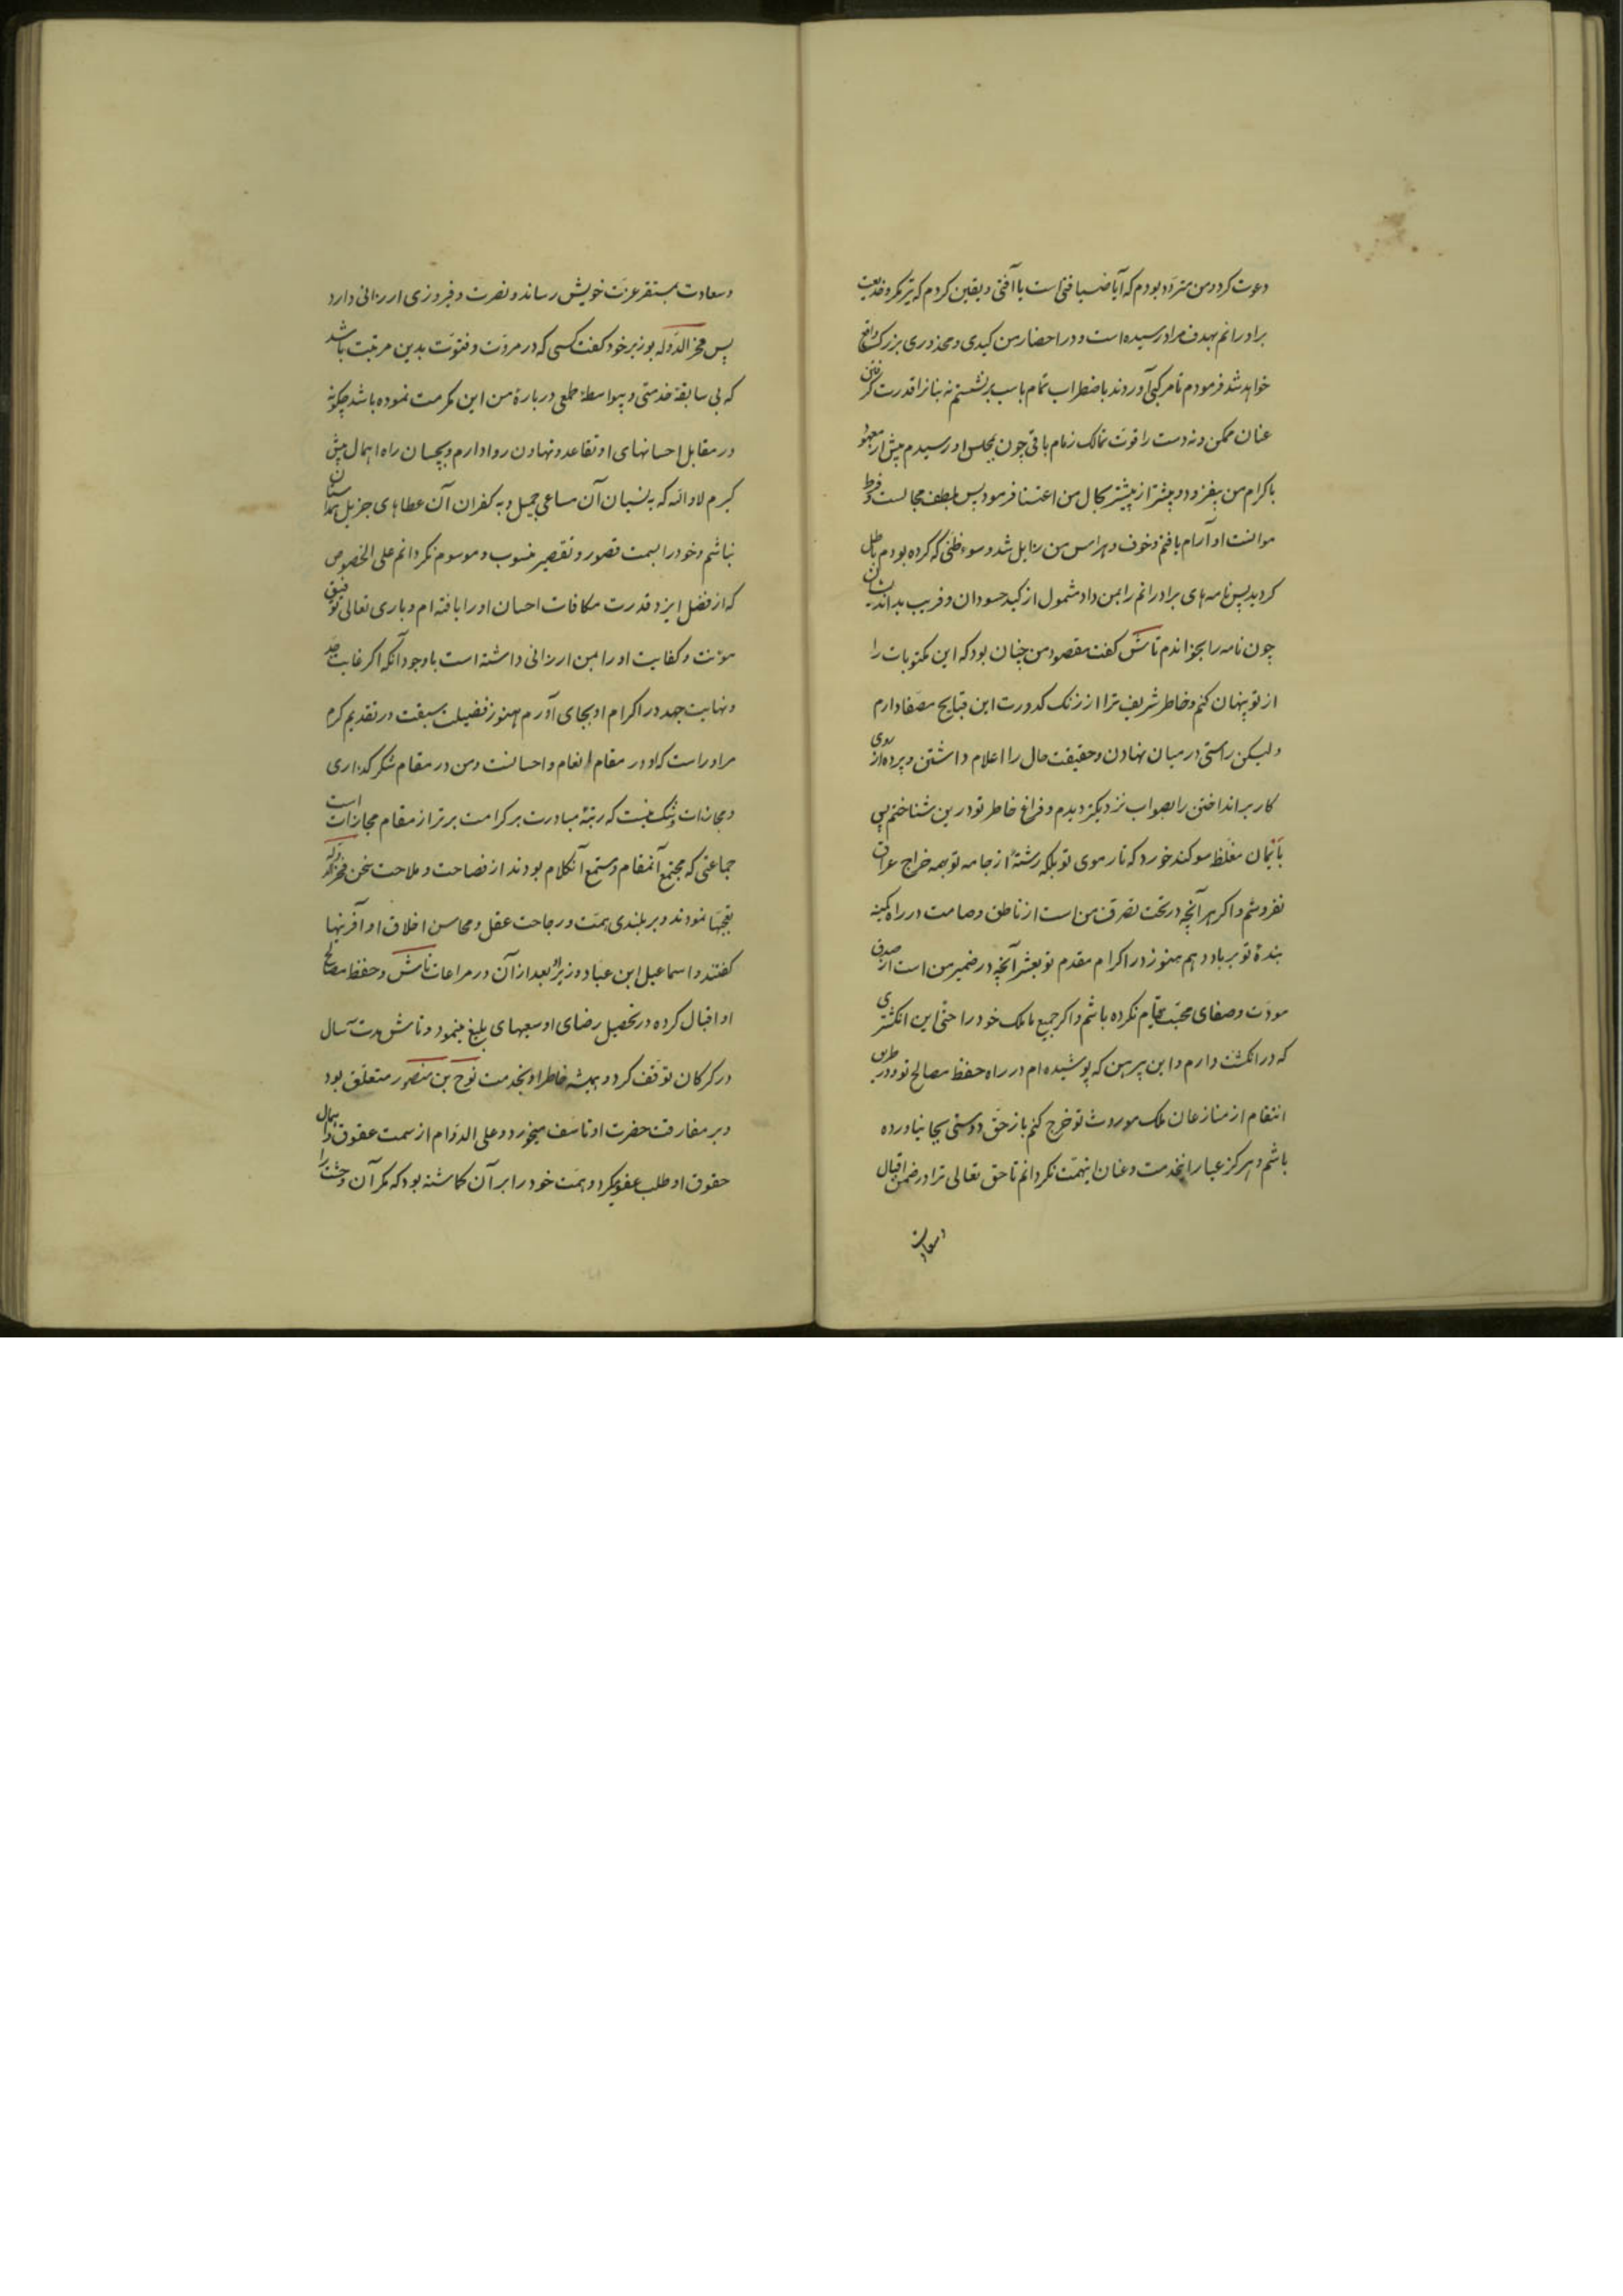 دعوت کرد و من متردّد بودم که آیا ضیافتی است یا آفتی و یقین کردم که تیر مکر و خدیعت
برادرانم بهدف مراد رسیده است و در احضار من کیدی و محذوری بزرک واقع
خواهد شد فرمودم تا مرکبی آوردند باضطراب تمام باسب برنشستم نه بنانرا قدرت کرفتن
عنان ممکن و نه دست را قوت تمالک زمام باقی چون بمجلس او رسیدم پیش از معهود
باکرام من بیفزود و بیشتر از پیشتر بحال من اعتنا فرمود پس بلطف مجالست و فرط
موانست او آرام یافتم و خوف و هراس من زایل شد و سوء ظنی که کرده بودم باطل
کردید پس نامه های برادرانم را بمن داد مشمول از کید حسودان و فریب بداندیشان
چون نامه را بخواندم تاش کفت مقصود من چنان بود که این مکتوبات را
از تو پنهان کنم و خاطر شریف ترا از زنک کدورت این قبایح مصفا دارم
ولیکن راستی در میان نهادن و حقیقت حال را اعلام داشتن و پرده از روی
کار برانداختن را بصواب نزدیکتر دیدم و فراغ خاطر تو درین شناختم پس
بأیمان مغلظ سوکند خورد که تار موی تو بلکه رشتهٔ از جامه تو بهمه خراج عراق
نفروشم و اکر هر آنچه در تحت تصرف من است از ناطق و صامت در راه کمینه
بندهٔ تو بر باد دهم هنوز در اکرام مقدم تو بعشر آنچه در ضمیر من است از صدق
مودّت و صفای محبت قیام نکرده باشم و اکر جمیع ما ملک خود را حتی این انکشتری
که در انکشت دارم و این پیرهن که پوشیده ام در راه حفظ مصالح تو و در طریق
انتقام از منازعان ملک موروث تو خرج کنم باز حق دوستی بجا نیاورده
باشم و هرکز عیار اینخدمت و عنان اینهمّت نکردانم تا حق تعالی ترا در ضمن اقبال
وسعادت
وسعادت بمستقر عزت خویش رساند و نصرت و فیروزی ارزانی دارد
پس فخر الدوله بوزیر خود کفت کسی که در مروّت و فتوّت بدین مرتبت باشد
که بی سابقهٔ خدمتی و بیواسطهٔ طمعی دربارهٔ من این مکرمت نموده باشد چکونه
در مقابل احسانهای او تقاعد و تهاون روا دارم و بچسان راه اهمال پیش
کیرم لا والله که به نسیان آن مساعی جمیل و به کفران آن عطاهای جزیل همداستان
نباشم و خود را بسمت قصور و تقصیر منسوب و موسوم نکردانم علی الخصوص
که از فضل ایزد قدرت مکافات احسان او را یافته ام و باری تعالی توفیق
مؤنت و کفایت او را بمن ارزانی داشته است باوجود آنکه اکر غایت جد
و نهایت جهد در اکرام او بجای آورم هنوز فضیلت سبقت در تقدیم کرم
مر او راست که او در مقام انعام و احسانست و من در مقام شکر کذاری
و مجازات و شک نیست که رتبهٔ مبادرت بر کرامت برتر از مقام مجازات است
جماعتی که مجتمع آنمقام و مستمع آنکلام بودند از فصاحت و ملاحت سخن فخر الدوله
تعجبها نمودند و بر بلندی همّت و رجاحت عقل و محاسن اخلاق او آفرینها
کفتند و اسماعیل ابن عبّاد وزیر بعد از آن در مراعات تاش و حفظ مصالح
او اقبال کرده در تحصیل رضای او سعیهای بلیغ مینمود و تاش مدت سه سال
در کرکان توقف کرد و همیشه خاطر او بخدمت نوح بن منصور متعلق بود
و بر مفارقت حضرت او تأسف میخورد و علی الدوام از سمت عقوق و اهمال
حقوق او طلب عفو میکرد و همّت خود را بر آن کماشته بود که مکر آن وحشت را